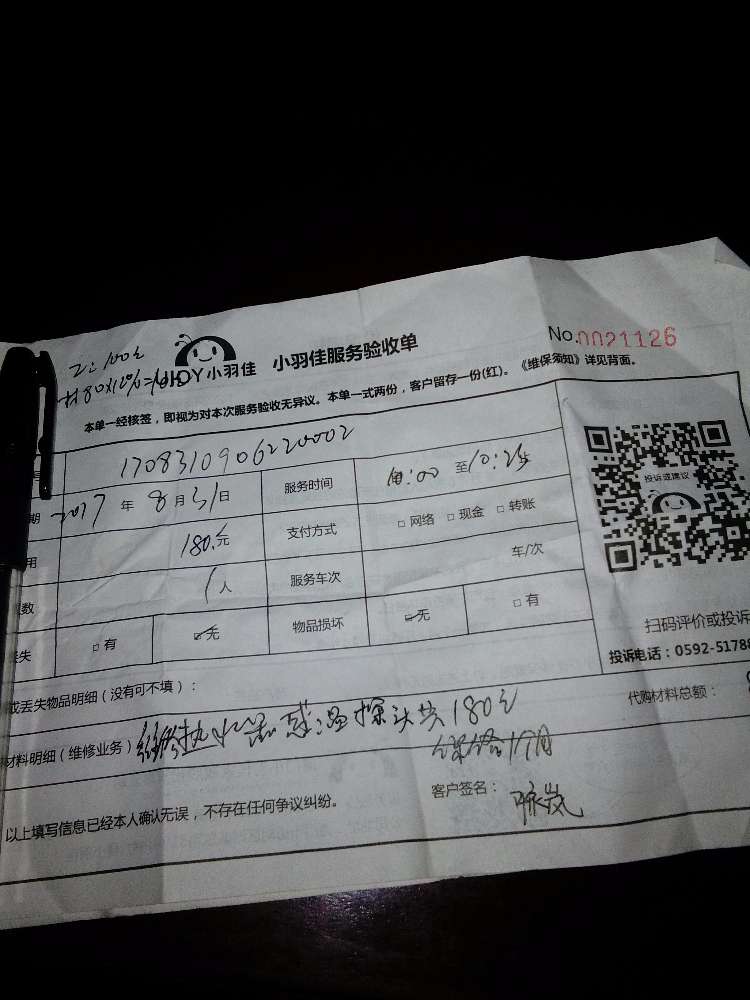 工:100元
材80×10%=
JDY小羽佳 小羽佳服务验收单
No.0021126
本单一经核签，即视为对本次服务验收无异议。本单一式两份，客户留存一份(红)。《维保须知》详见背面。
号 1708310906220002
期 2017 年 8 月 31 日 服务时间 至 10:25
用 180.元 支付方式 □ 网络 □ 现金 □ 转账
数 1 人 服务车次 车/次
失 □ 有 ☑ 无 物品损坏 ☑ 无 □ 有
投诉或建议
扫码评价或投诉
投诉电话：0592-51788
或丢失物品明细（没有可不填）：
代购材料总额：
材料明细（维修业务） 维修热水器感温探头共180元
保修1个月
以上填写信息已经本人确认无误，不存在任何争议纠纷。
客户签名：